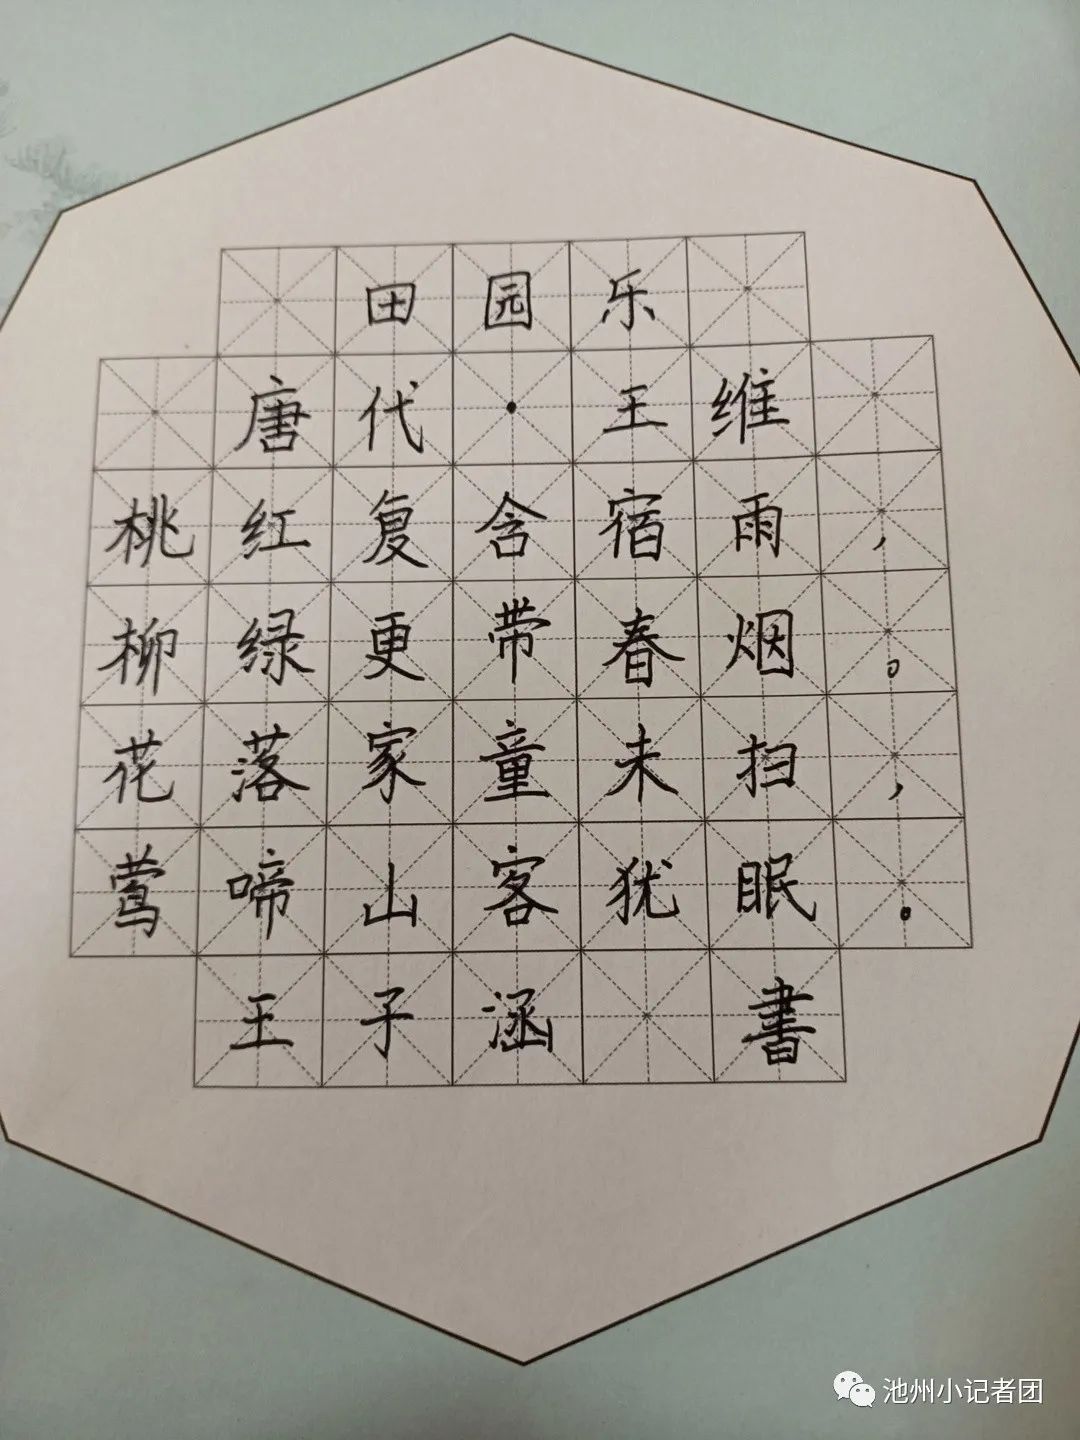 田园乐
唐代·王维
桃红复含宿雨，
柳绿更带春烟。
花落家童未扫，
莺啼山客犹眠。
王子涵 書
池州小记者团